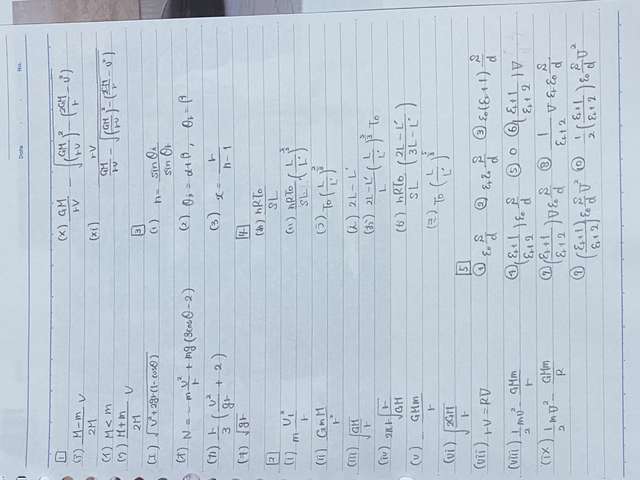 No.
Date
[1]
(3) M-m/2M V
(4) M<m
(5) M+m/2M V
(6) √(V²+2gr(1-cosθ))
(7) N = -m v²/r + mg(3cosθ-2)
(8) r/3 (v²/gr + 2)
(9) √gr
[2]
(i) m v₁²/r
(ii) GmM/r²
(iii) √(GM/r)
(iv) 2πr√(r/GM)
(v) -GMm/r
(vi) √(2GM/r)
(vii) rv = RV
(viii) 1/2 mv² - GMm/r
(ix) 1/2 mV² - GMm/R
(x) GM/rV - √((GM/rV)² - (2GM/r - V²))
(xi) rV / (GM/rV - √((GM/rV)² - (2GM/r - V²)))
[3]
(1) n = sinθ₁/sinθ₂
(2) θ₁ = α+β, θ₂ = β
(3) x = r/n-1
[4]
nRT₀/SL
nRT₀/SL (L/L')^(5/3)
T₀(L/L')^(2/3)
2L-L'
2L-L'/L (L/L')^(5/3) T₀
nRT₀/SL (2L-L'/3L-L')
T₀(L/L')^(2/3)
[5]
① ε₀ S/d ② εᵣε₀ S/d ③ ε₀(εᵣ+1) S/d
④ (εᵣ+1/εᵣ+2) ε₀ S/d ⑤ 0 ⑥ (εᵣ+1/εᵣ+2) V
⑦ (εᵣ+1/εᵣ+2) V ε₀ S/d ⑧ 1/εᵣ+2 V εᵣε₀ S/d
⑨ (εᵣ+1/εᵣ+2) ε₀ S/d V² ⑩ 1/2 (εᵣ+1/εᵣ+2) ε₀ S/d V²